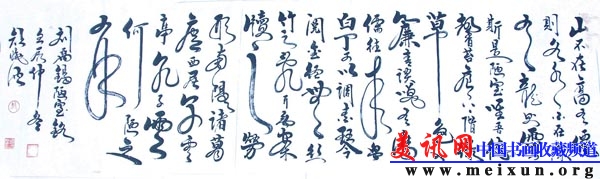 山不在高有僊
則名水不在深
有龍則靈
斯是陋室唯吾德
馨苔痕上階綠
草色
入簾青談笑有鴻
儒往來無
白丁可以調素琴
閱金經無絲
竹之亂耳無案
牘之勞
形南陽諸葛
廬西蜀子雲
亭孔子雲
何陋之
有
劉禹錫陋室銘
美讯网
中国书画收藏频道
www.meixun.org